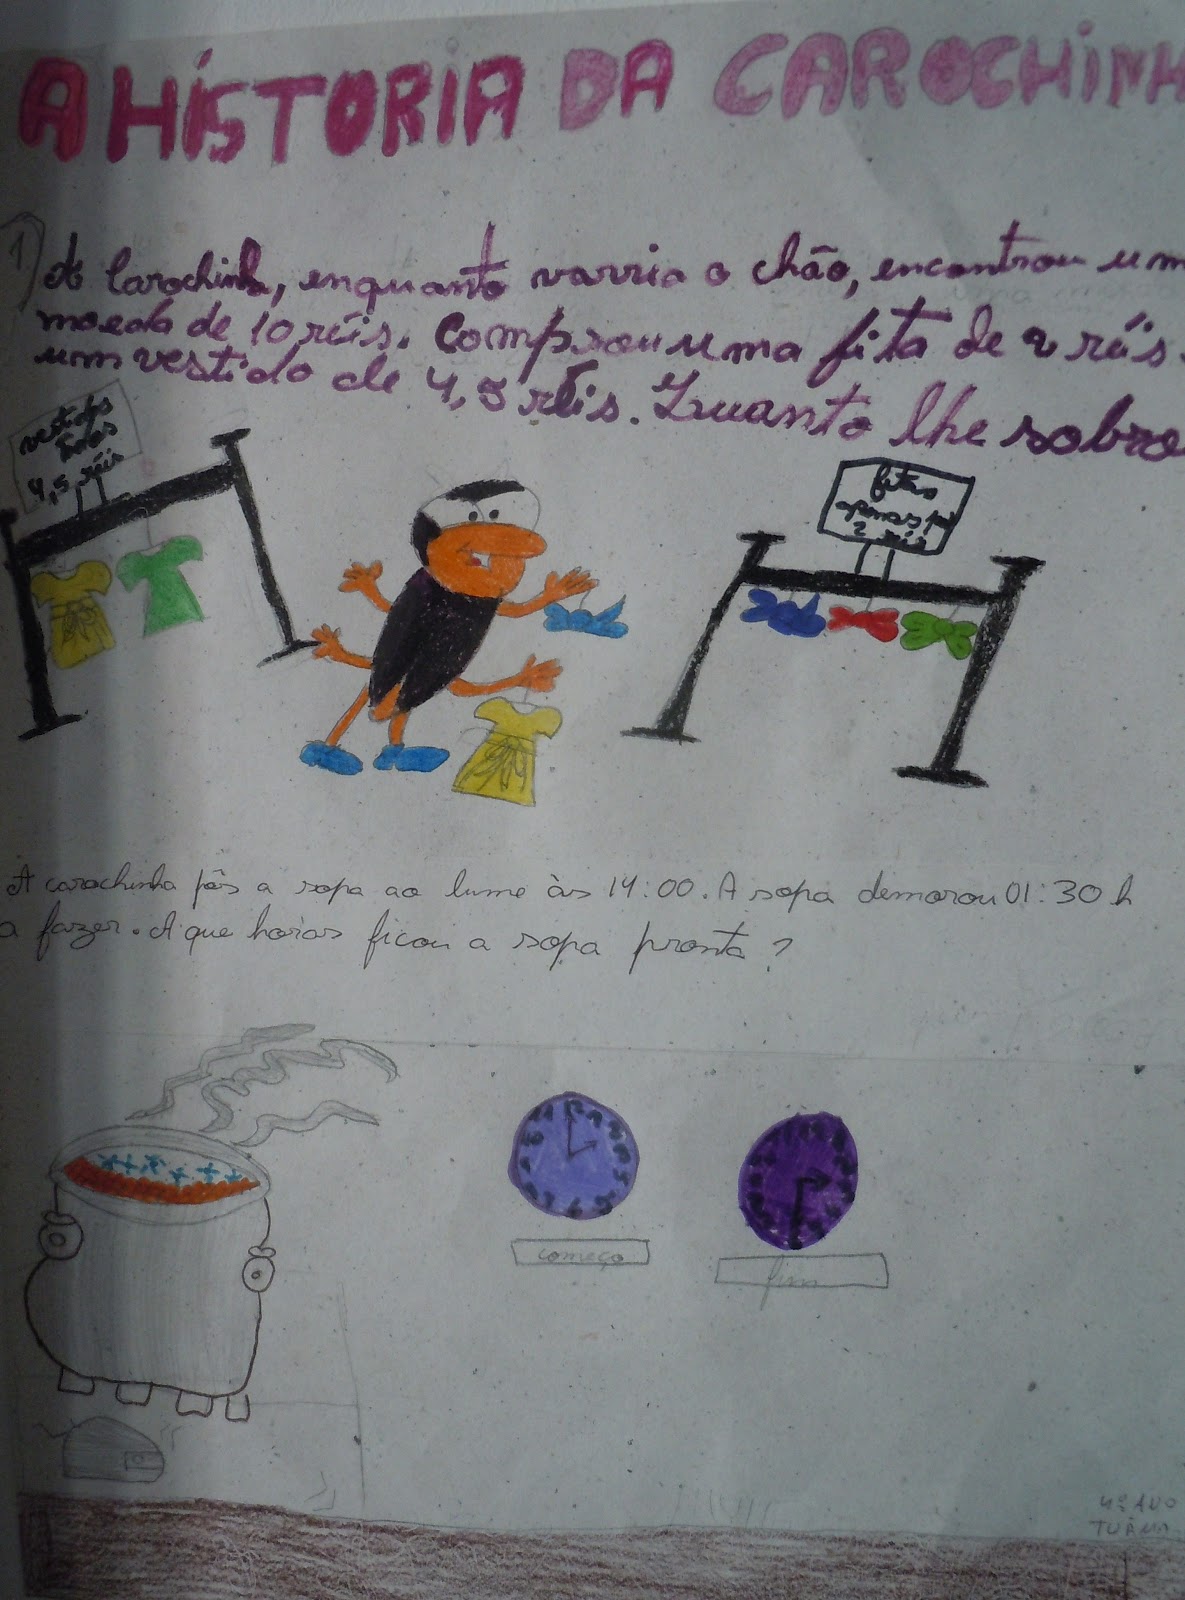 A HISTORIA DA CAROCHINH
1) A Carochinha, enquanto varria o chão, encontrou um
moeda de 10 réis. Comprou uma fita de 2 réis.
um vestido de 4,5 réis. Quanto lhe sobro
vestidos
4,5 réis
fitas
apenas por
2 réis
A carochinha pôs a sopa ao lume às 14:00. A sopa demorou 01:30 h
a fazer. A que horas ficou a sopa pronta?
começo
fim
4º ANO